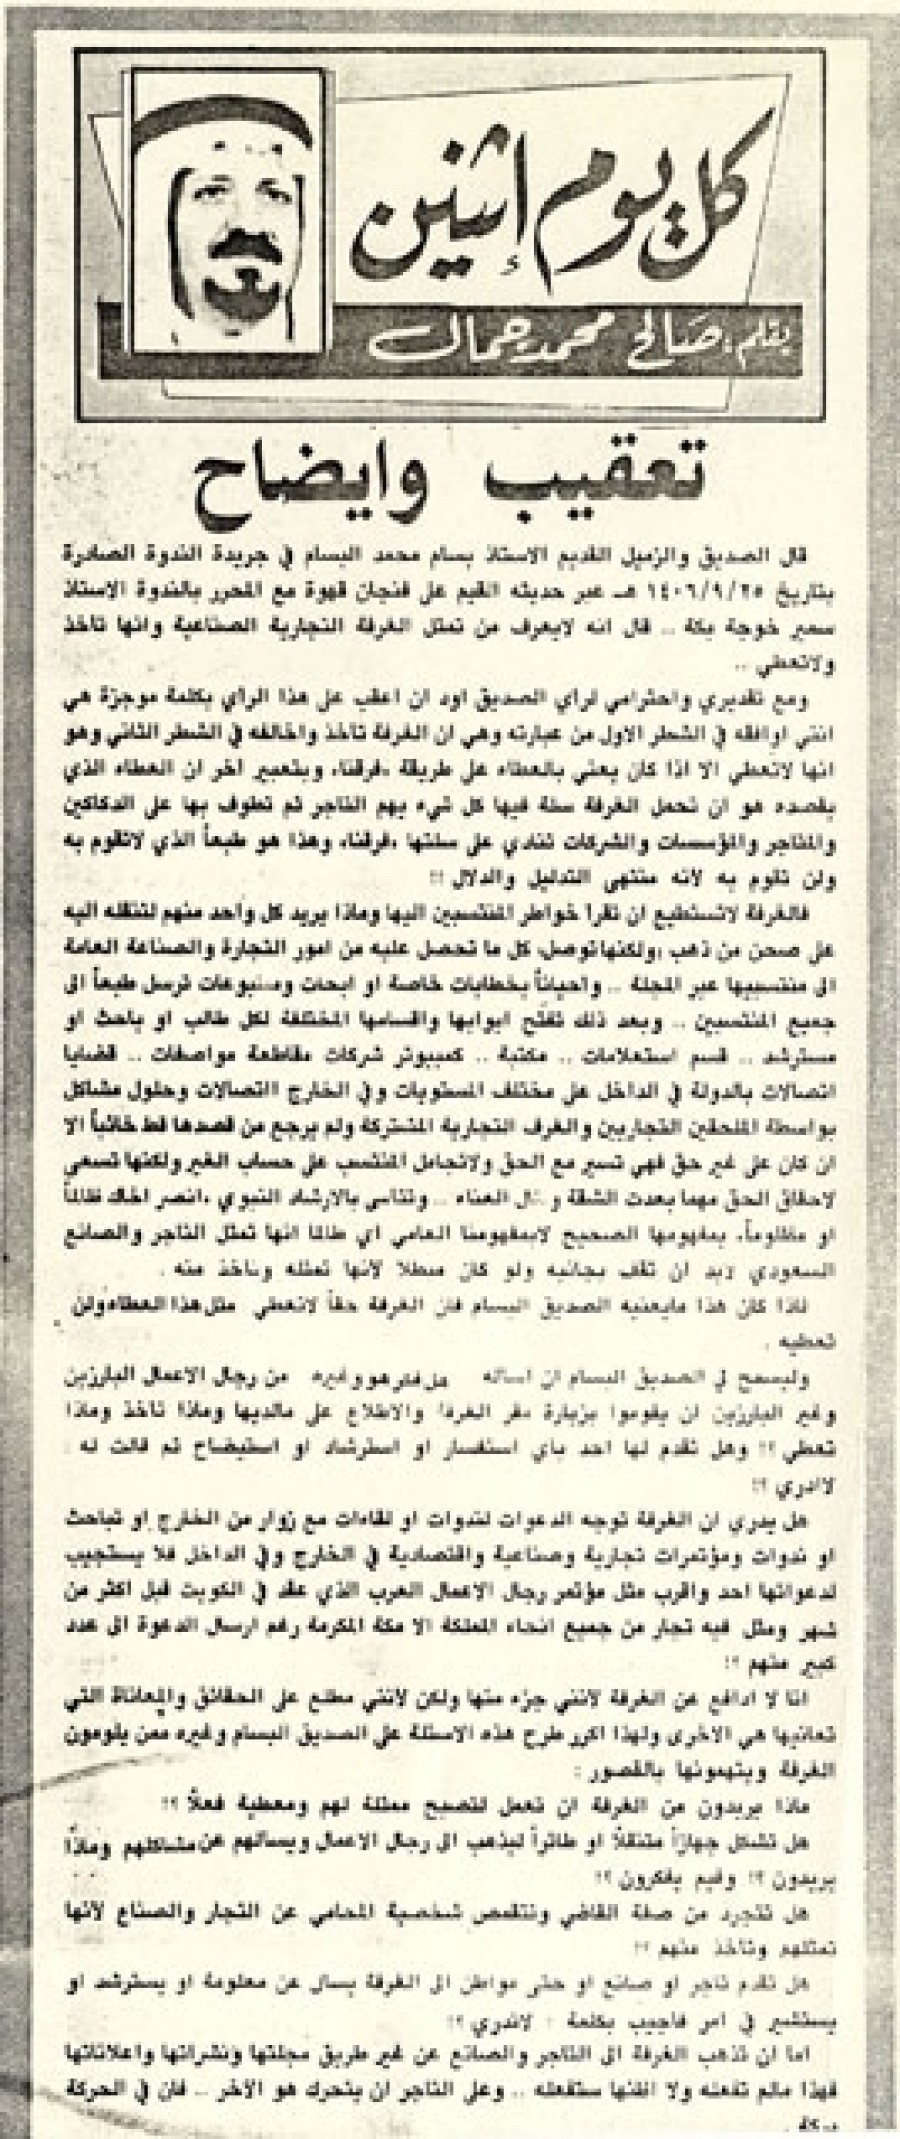 كل يوم إثنين
بقلم: صالح محمد جمال
تعقيب وايضاح
قال الصديق والزميل القديم الاستاذ بسام محمد البسام في جريدة الندوة الصادرة
بتاريخ ١٤٠٦/٩/٢٥ هـ عبر حديثه القيم على فنجان قهوة مع المحرر بالندوة الاستاذ
سمير خوجة بكة .. قال انه لايعرف من تمثل الغرفة التجارية الصناعية وانها تأخذ
ولاتعطي ..
ومع تقديري واحترامي لرأي الصديق اود ان اعقب على هذا الرأي بكلمة موجزة هي
انني اوافقه في الشطر الاول من عبارته وهي ان الغرفة تأخذ واخالفه في الشطر الثاني وهو
انها لاتعطي الا اذا كان يعني بالعطاء على طريقة «فرقنا» وبتعبير آخر ان العطاء الذي
يقصده هو ان تحمل الغرفة سلة فيها كل شيء يهم التاجر ثم تطوف بها على الدكاكين
والمتاجر والمؤسسات والشركات تنادي على سلتها «فرقنا» وهذا هو طبعاً الذي لاتقوم به
ولن تقوم به لأنه منتهى التدليل والدلال !!
فالغرفة لاتستطيع ان تقرأ خواطر المنتسبين اليها وماذا يريد كل واحد منهم لتنقله اليه
على صحن من ذهب ، ولكنها توصل كل ما تحصل عليه من امور التجارة والصناعة العامة
الى منتسبيها عبر المجلة .. واحياناً بخطابات خاصة او ابحاث ومطبوعات ترسل طبعاً الى
جميع المنتسبين .. وبعد ذلك تفتح ابوابها واقسامها المختلفة لكل طالب او باحث او
مسترشد .. قسم استعلامات .. مكتبة .. كمبيوتر شركات مقاطعة مواصفات .. قضايا
اتصالات بالدولة في الداخل على مختلف المستويات وفي الخارج اتصالات وحلول مشاكل
بواسطة الملحقين التجاريين والغرف التجارية المشتركة ولم يرجع من قصدها قط خائباً الا
ان كان على غير حق فهي تسير مع الحق ولاتجامل المنتسب على حساب الغير ولكنها تسعى
لاحقاق الحق مهما بعدت الشقة و العناء .. وتتأسى بالارشاد النبوي «انصر اخاك ظالماً
او مظلوماً» بمفهومها الصحيح لابمفهومنا العامي اي طالما انها تمثل التاجر والصانع
السعودي لابد ان تقف بجانبه ولو كان مبطلا لأنها تمثله وتأخذ منه .
لذا كان هذا مايعنيه الصديق البسام فان الغرفة حقاً لاتعطي مثل هذا العطاء ولن
تعطيه .
وليسمح لي الصديق البسام ان اسأله هل فكر هو وغيره من رجال الاعمال البارزين
وغير البارزين ان يقوموا بزيارة مقر الغرفة والاطلاع على مالديها وماذا تأخذ وماذا
تعطي ؟! وهل تقدم لها احد بأي استفسار او استرشاد او استيضاح ثم قالت له :
لاادري ؟!
هل يدري ان الغرفة توجه الدعوات لندوات او لقاءات مع زوار من الخارج او تباحث
او ندوات ومؤتمرات تجارية وصناعية واقتصادية في الخارج وفي الداخل فلا يستجيب
لدعواتها احد واقرب مثل مؤتمر رجال الاعمال العرب الذي عقد في الكويت قبل اكثر من
شهر ومثل فيه تجار من جميع انحاء المملكة الا مكة المكرمة رغم ارسال الدعوة الى عدد
كبير منهم ؟!
انا لا ادافع عن الغرفة لأنني جزء منها ولكن لأنني مطلع على الحقائق والمعاناة التي
تعانيها هي الاخرى ولهذا اكرر طرح هذه الاسئلة على الصديق البسام وغيره ممن يلومون
الغرفة ويتهمونها بالقصور :
ماذا يريدون من الغرفة ان تعمل لتصبح ممثلة لهم ومعطية فعلاً ؟!
هل تشكل جهازاً متنقلاً او طائراً ليذهب الى رجال الاعمال ويسألهم عن مشاكلهم وماذا
يريدون ؟! وفيم يفكرون ؟!
هل تتجرد من صفة القاضي وتتقمص شخصية المحامي عن التجار والصناع لأنها
تمثلهم وتأخذ منهم ؟!
هل تقدم تاجر او صانع او حتى مواطن الى الغرفة يسأل عن معلومة او يسترشد او
يستشير في امر فأجيب بكلمة : لاندري ؟!
اما ان تذهب الغرفة الى التاجر والصانع عن غير طريق مجلتها ونشراتها واعلاناتها
فهذا مالم تفعله ولا اظنها ستفعله .. وعلى التاجر ان يتحرك هو الآخر .. فان في الحركة
بركة .